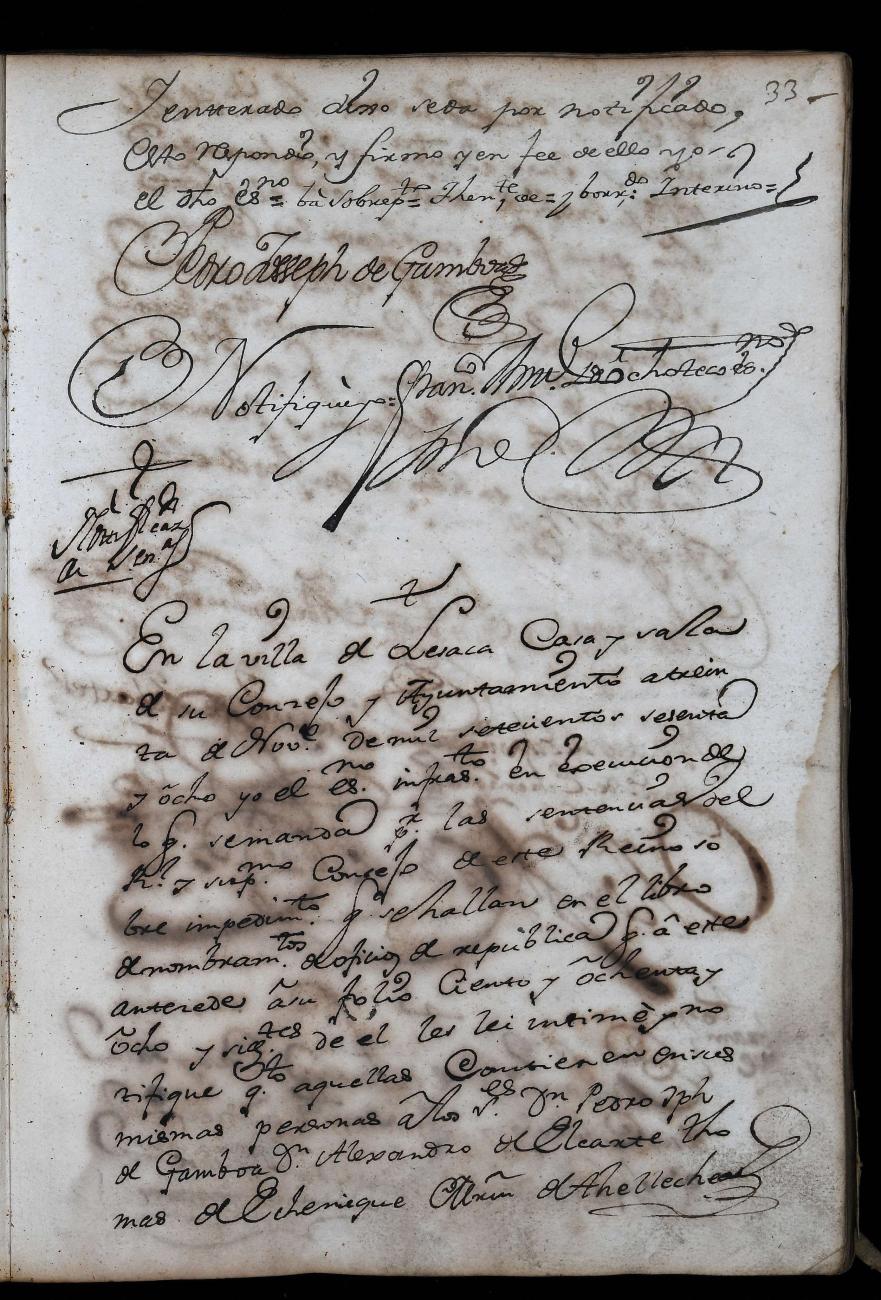 33
I entterado dixo se da por notificado,
Esto respondio, y firmo y en fee de ello yo
el dho es.no = ba sobrep.to = Then.te, de = y borr.do: Interino =
Pedro Joseph de Gamboa
Notifiquè yo = Juan Ochoteco es.no
Notificaz.n
de Sen.as
En la villa de Lesaca Casa y salla
de su Concejo y Ayuntamiento a trein
ta de Nov.e de mil setecientos sesenta
y ôcho yo el es.no infras.to en execucion de
lo q. se manda p.r las sentencias del
R.l y sup.mo Consejo de este Reino so
bre impedim.tos q.e se hallan en el libro
de nombram.tos de oficios de republica q. â este
antezede â su folio Ciento y ôchenta y
ôcho y sig.tes de el les lei intimè y no
tifique q.to aquellas Contienen en sus
mismas personas â los S.res D.n Pedro Jph
de Gamboa D.n Alexandro de Elcarte Tho
mas de Echenique Mrñ de Thellechea